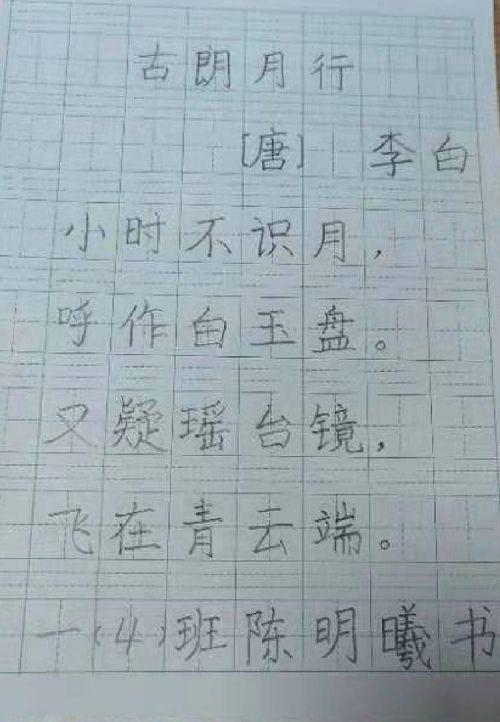 古朗月行
[唐] 李白
小时不识月，
呼作白玉盘。
又疑瑶台镜，
飞在青云端。
一(4)班陈明曦书